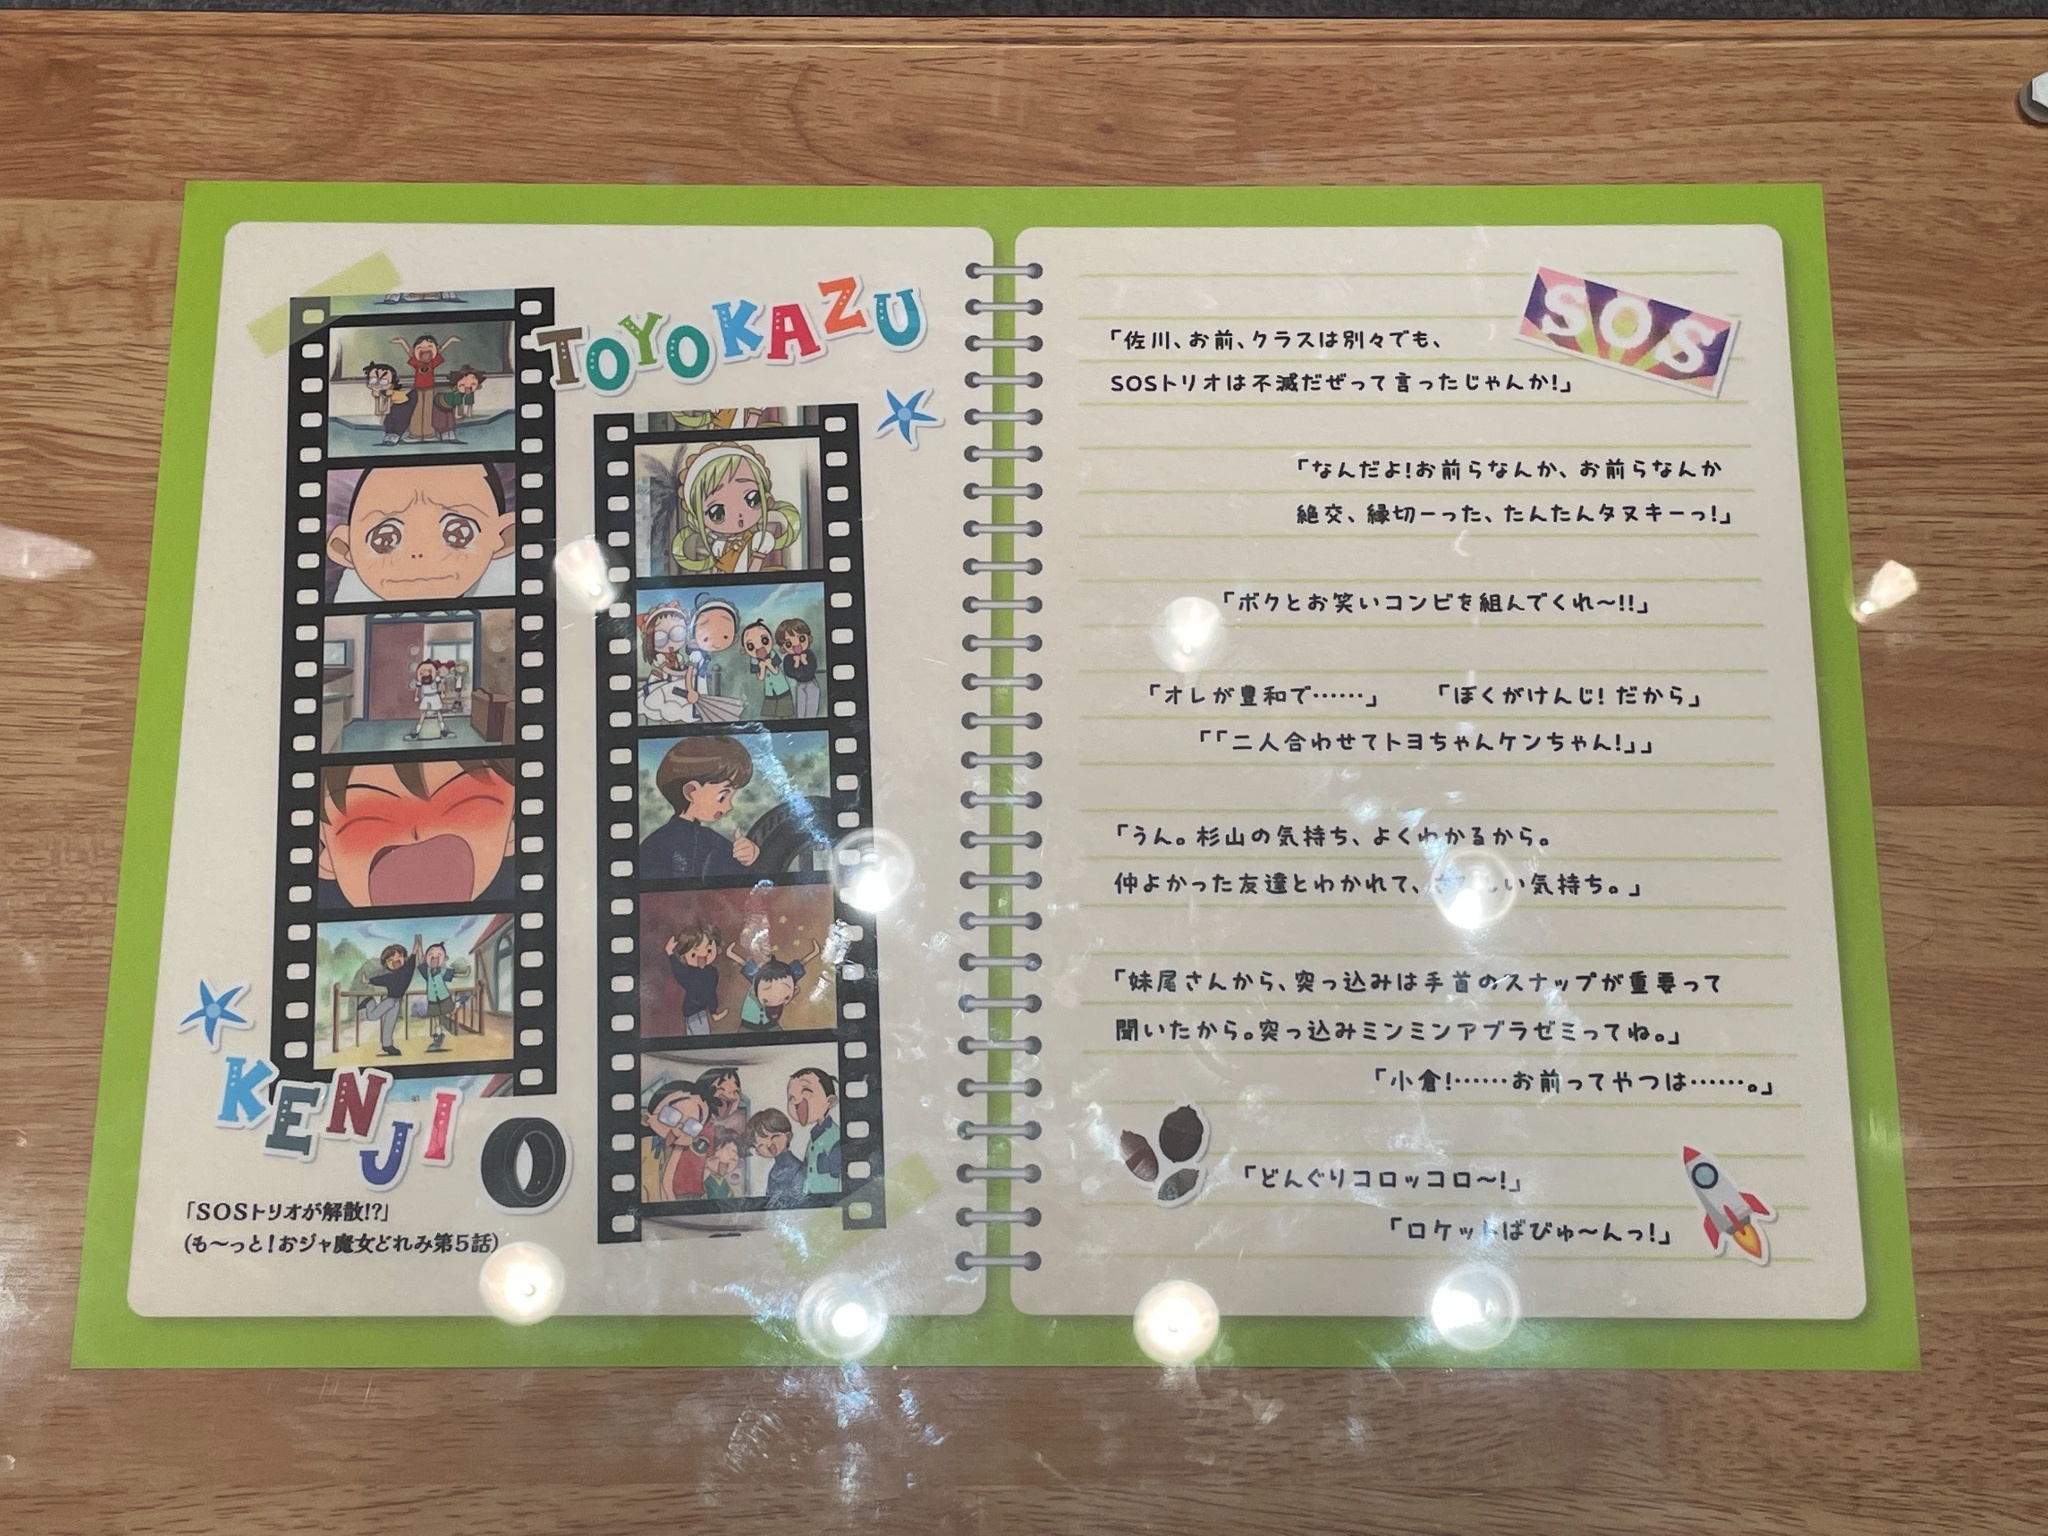 TOYOKAZU
KENJI
「SOSトリオが解散!?」
(も〜っと!おジャ魔女どれみ第5話)
SOS
「佐川、お前、クラスは別々でも、
SOSトリオは不滅だぜって言ったじゃんか!」
「なんだよ!お前らなんか、お前らなんか
絶交、縁切ーった、たんたんタヌキーっ!」
「ボクとお笑いコンビを組んでくれ〜!!」
「オレが豊和で……」 「ぼくがけんじ! だから」
「「二人合わせてトヨちゃんケンちゃん!」」
「うん。杉山の気持ち、よくわかるから。
仲よかった友達とわかれて、い気持ち。」
「妹尾さんから、突っ込みは手首のスナップが重要って
聞いたから。突っ込みミンミンアブラゼミってね。」
「小倉!……お前ってやつは……。」
「どんぐりコロッコロ〜!」
「ロケットばびゅ〜んっ!」